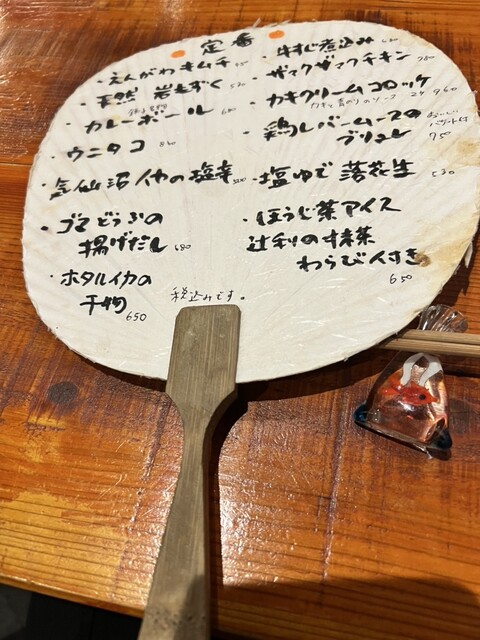 定番
・えんがわキムチ
・天然 岩もずく 530
・カレーボール 680
・ウニタコ
・気仙沼イカの塩辛
・ゴマどうふの
揚げだし 680
・ホタルイカの
干物 650
・牛すじ煮込み
・ザクザクチキン 780
・カキクリームコロッケ
2ケ 960
・鶏レバームースの
ブリュレ 750
・塩ゆで落花生 530
・ほうじ茶アイス
辻利の抹茶
わらび付き 650
税込みです。